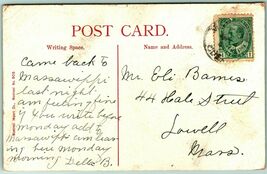 POST CARD.
Writing Space.
Name and Address.
Came back to
Massawippi
last night
am feeling fine
if you write before
monday add to
Massawippi am leav
ing here monday
morning Della B.
Mr. Eli Barnes
44 Hale Street
Lowell
Mass.
1